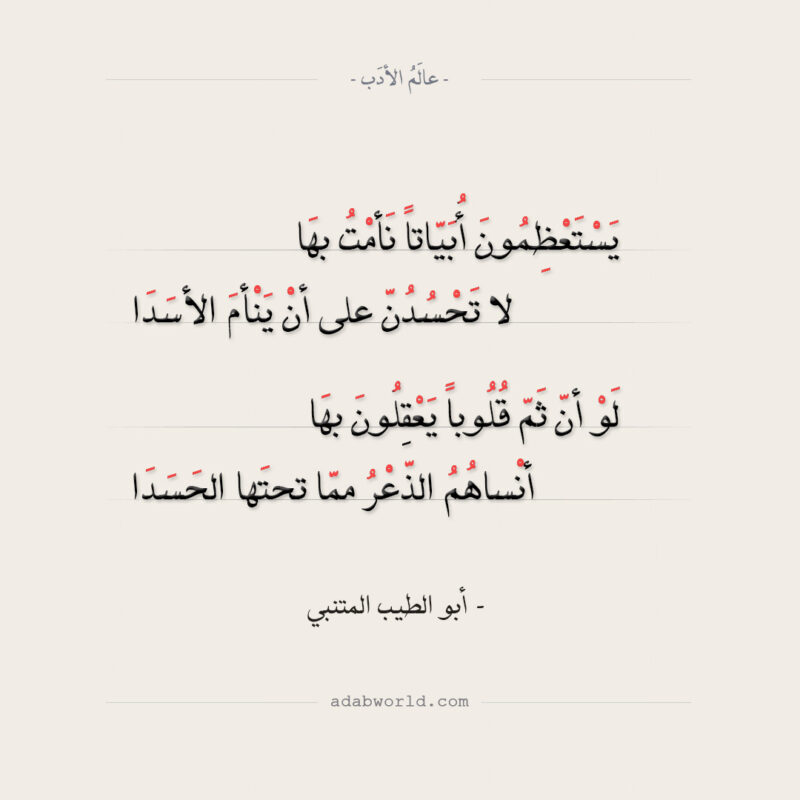 - عالَمُ الأدَب -
يَسْتَعْظِمُونَ أُبَيّاتاً نَأمْتُ بهَا
لا تَحْسُدُنّ على أنْ يَنْأمَ الأسَدَا
لَوْ أنّ ثَمّ قُلُوباً يَعْقِلُونَ بهَا
أنْساهُمُ الذّعْرُ ممّا تحتَها الحَسَدَا
- أبو الطيب المتنبي
adabworld.com